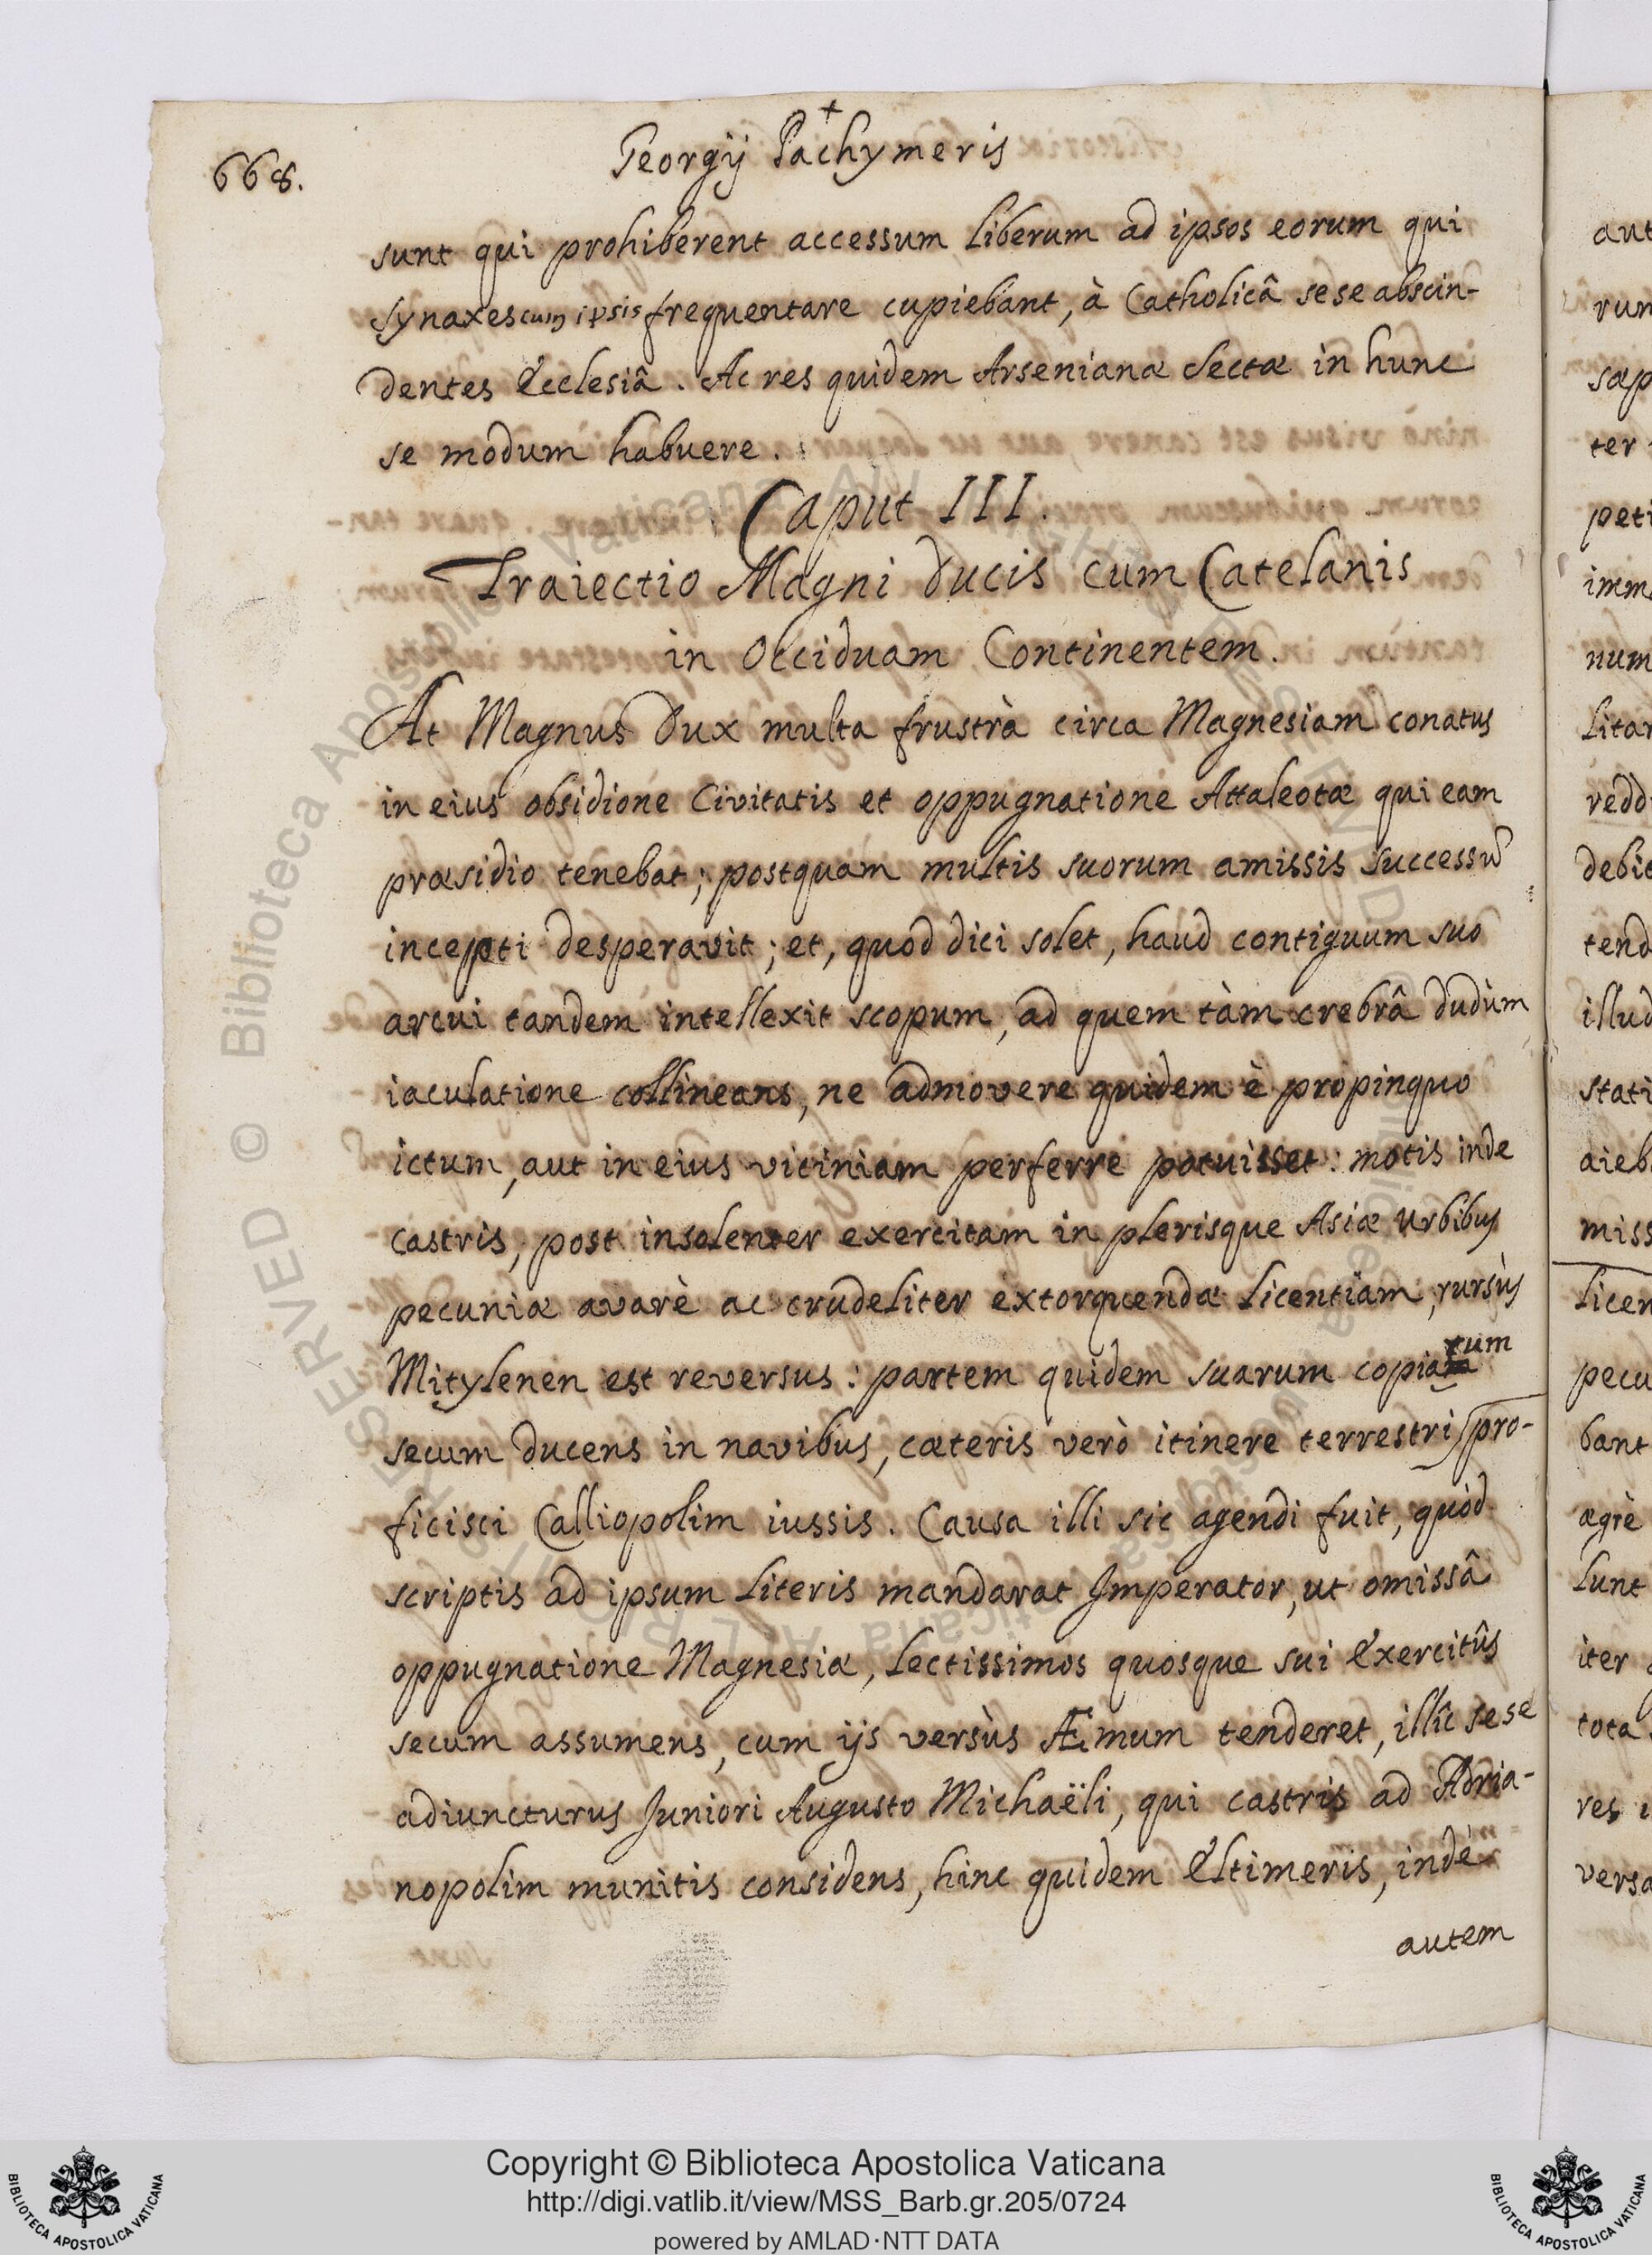 668.
+
Georgij Pachymeris
sunt qui prohiberent accessum liberum ad ipsos eorum qui
synaxes cum ipsis frequentare cupiebant, à Catholicâ sese abscin-
dentes Ecclesiâ. Ac res quidem Arsenianæ Sectæ in hunc
se modum habuere.
Caput III.
Traiectio Magni Ducis cum Catelanis
in Occiduam Continentem.
At Magnus Dux multa frustrà circa Magnesiam conatus
in eius obsidione Civitatis et oppugnatione Attaleotæ qui eam
præsidio tenebat; postquam multis suorum amissis successu
incepti desperavit; et, quod dici solet, haud contiguum suo
arcui tandem intellexit scopum, ad quem tàm crebrâ dudùm
iaculatione collineans, ne admovere quidem è propinquo
ictum, aut in eius viciniam perferre potuisset: motis inde
castris, post insolenter exercitam in plerisque Asiæ Urbibus
pecuniæ avarè ac crudeliter extorquendæ licentiam, rursùs
Mitylenen est reversus: partem quidem suarum copiarum
secum ducens in navibus, cæteris verò itinere terrestri pro-
ficisci Calliopolim iussis. Causa illi sic agendi fuit, quòd
scriptis ad ipsum literis mandarat Imperator, ut omissâ
oppugnatione Magnesiæ, lectissimos quosque sui Exercitûs
secum assumens, cum ijs versùs Æmum tenderet, illîc sese
adiuncturus Juniori Augusto Michaëli, qui castris ad Adria-
nopolim munitis considens, hinc quidem Eltimeris, indè
autem
aut
rum
sæp
ter
peti
imm
num
litar
redd
debit
tend
illud
stati
aieb
miss
licen
pecu
bant
ægrè
lunt
iter
tota
res
versa
Copyright © Biblioteca Apostolica Vaticana
http://digi.vatlib.it/view/MSS_Barb.gr.205/0724
powered by AMLAD·NTT DATA
BIBLIOTECA APOSTOLICA VATICANA
BIBLIOTECA APOSTOLICA VATICANA